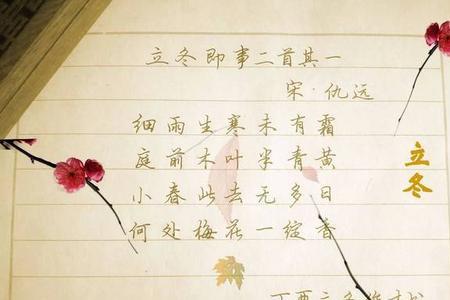 立冬即事二首其一
宋·仇远
细雨生寒未有霜
庭前木叶半青黄
小春此去无多日
何处梅花一绽香
立冬
丁酉立冬